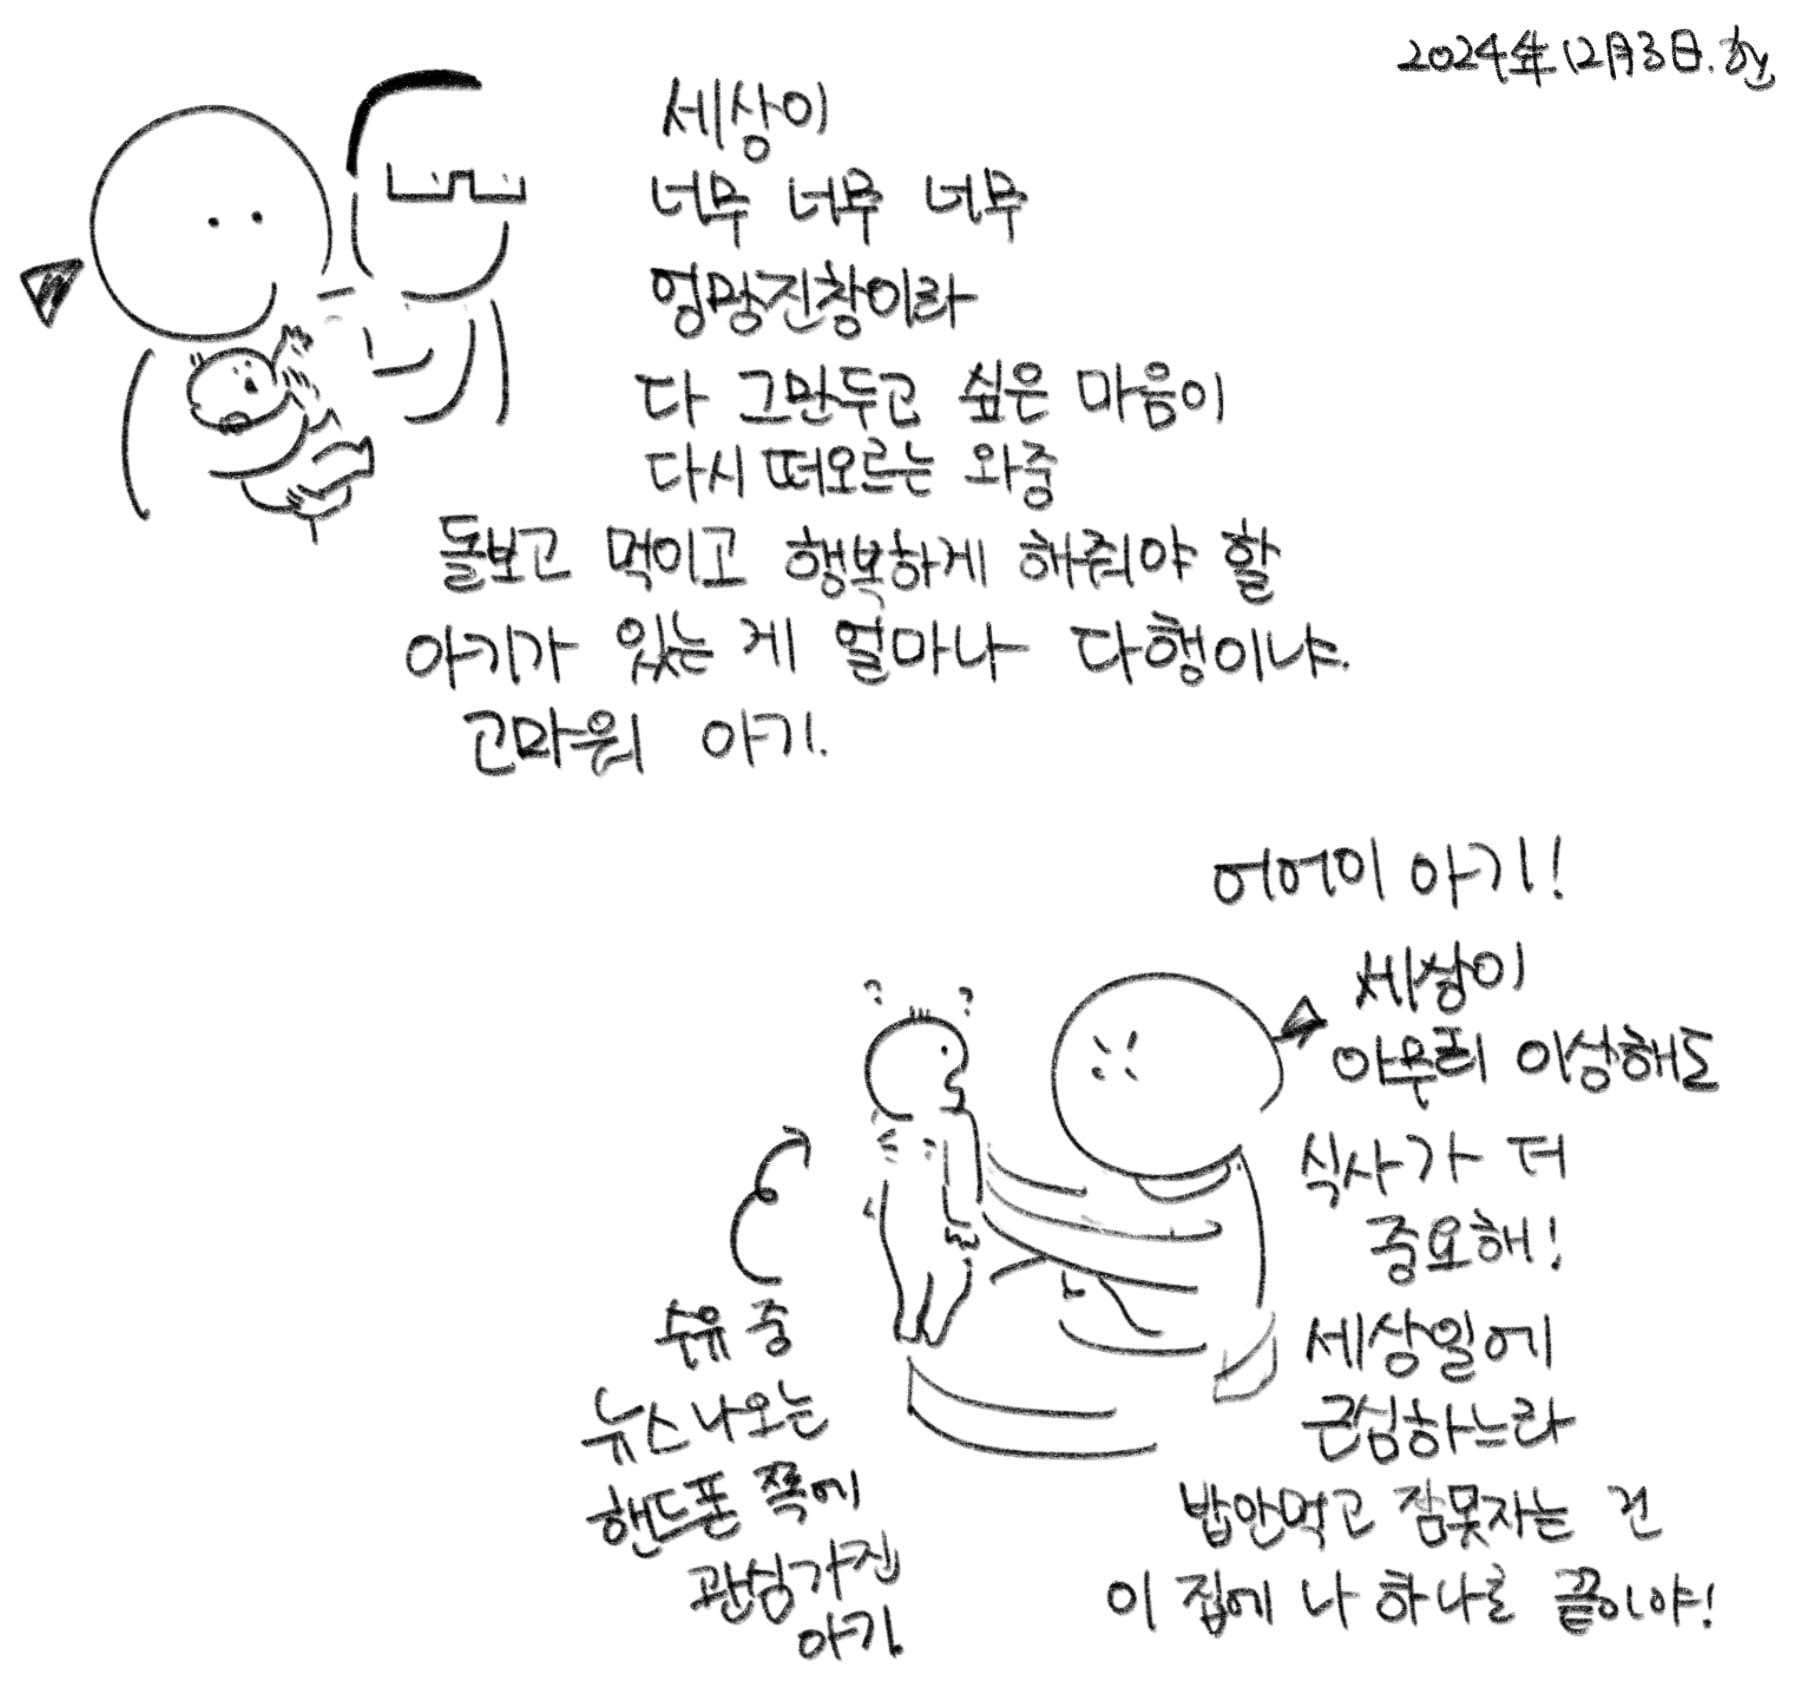 2024年12月3日.한
세상이
너무 너무 너무
엉망진창이라
다 그만두고 싶은 마음이
다시 떠오르는 와중
돌보고 먹이고 행복하게 해줘야 할
아기가 있는 게 얼마나 다행이냐.
고마워 아기.
어어이 아기!
세상이
아무리 이상해도
식사가 더
중요해!
세상일에
근심하느라
밥안먹고 잠못자는 건
이 집에 나 하나로 끝이야!
수유 중
뉴스나오는
핸드폰 쪽에
관심가진
아기